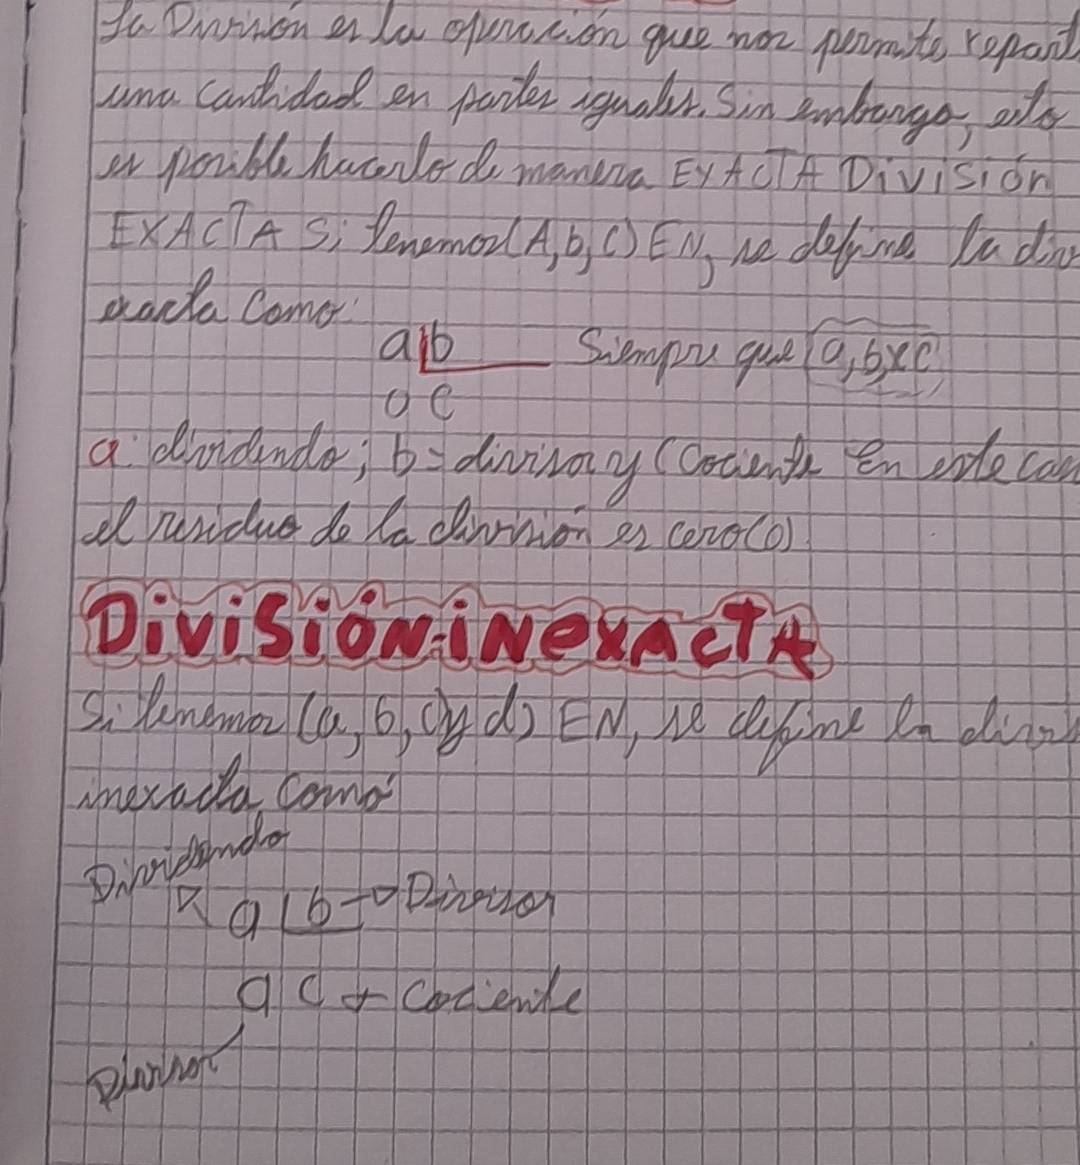 La División es la operación que nos permite repart
una cantidad en partes iguales. Sin embargo, esto
es posible hacerlo de manera EXACTA División
EXACTA Si tenemos (A, b, C) EN, se define la div
exacta como:
a b Siempre que a, b, x c
0 c
a: dividendo; b = divisor y (Cociente En este cas
el residuo de la división es cero (0)
División inexacta
Si tenemos (a, b, c y d) EN, se define la divis
inexacta como
Dividendo
a b → Divisor
a c → Cociente
Divisor